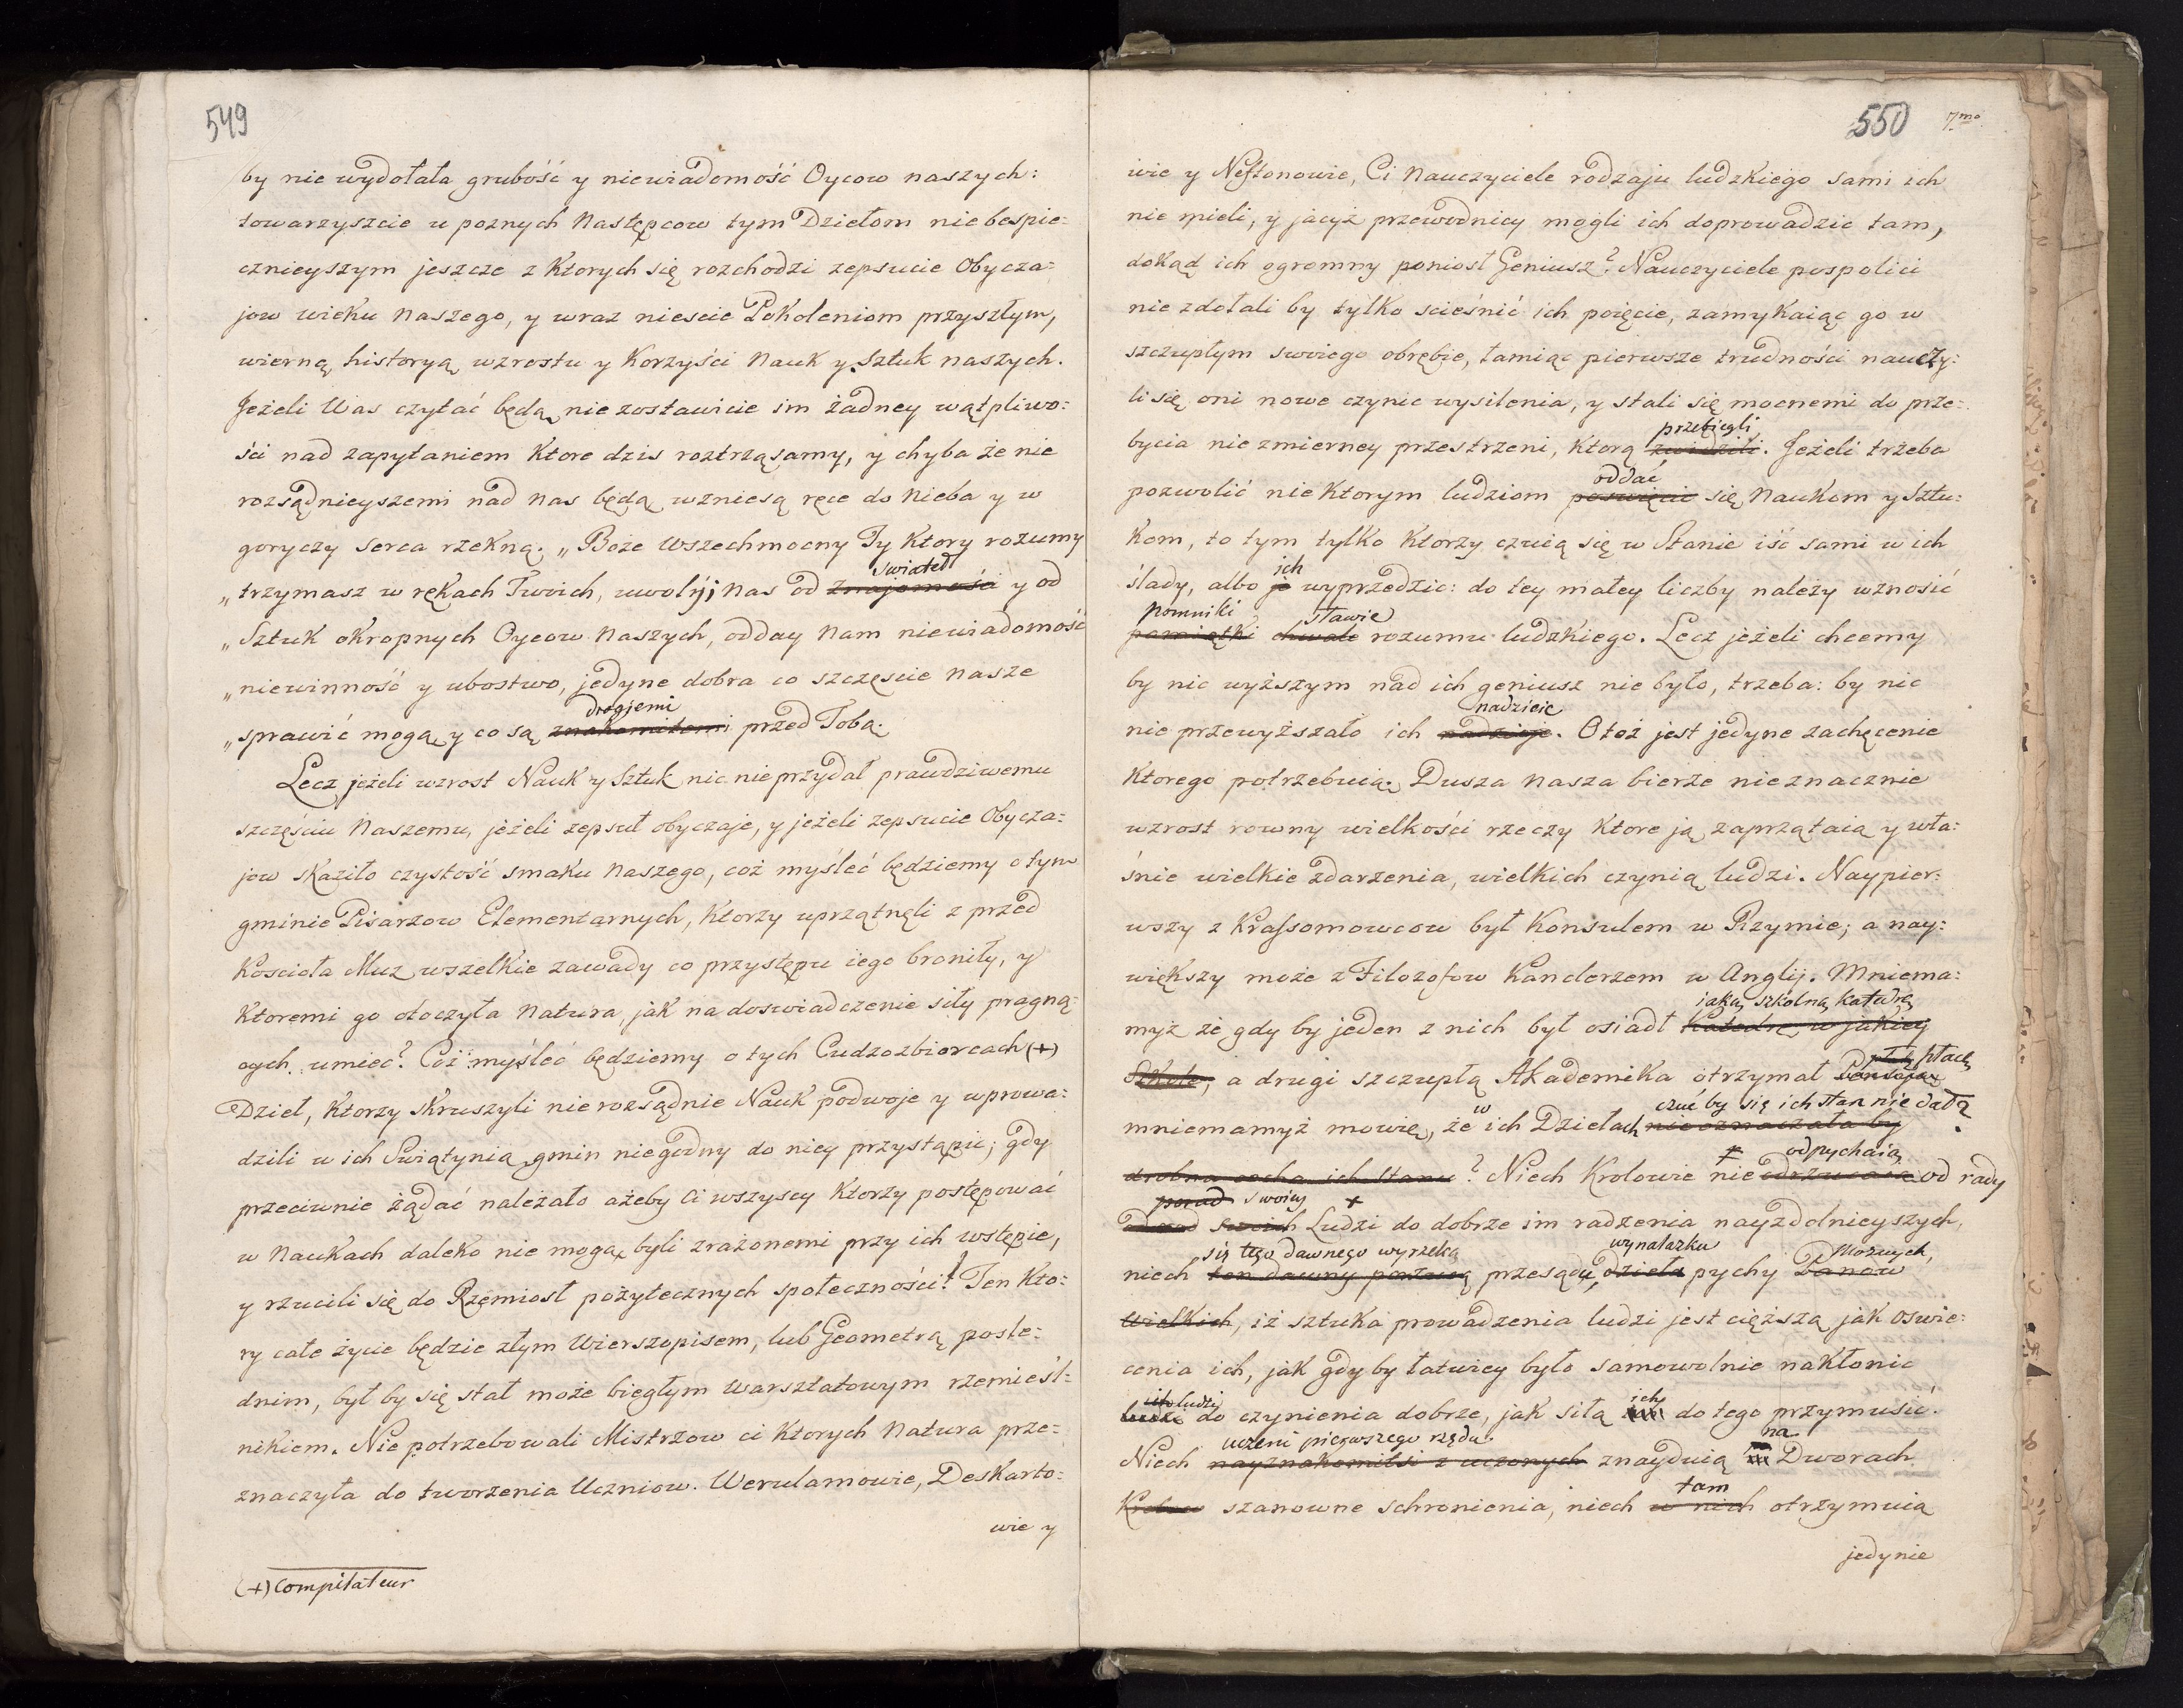 549
by nie wydołała grubość y niewiadomość Oycow naszych:
towarzyszcie u poznych Następcow tym Dziełom niebespie:
cznieyszym jeszcze z Ktorych się rozchodzi zepsucie Obycza:
jow wieku Naszego, y wraz niescie Pokoleniom przyszłym,
wierną historyą wzrostu y Korzyści Nauk y Sztuk naszych.
Jeżeli Was czytać będą nie zostawicie im żadney wątpliwo:
ści nad zapytaniem Ktore dzis roztrząsamy, y chyba że nie
rozsądnieyszemi nad nas będą wzniesą ręce do Nieba y w
goryczy serca rzekną: „Boże Wszechmocny Ty Ktory rozumy
swiateł
„trzymasz w rękach Twoich, uwolnij nas od znajomości y od
„Sztuk okropnych Oycow Naszych, odday Nam niewiadomość
„niewinność y ubostwo, jedyne dobra co szczęscie Nasze
drogiemi
„sprawić mogą y co są znakomitemi przed Tobą.
Lecz jeżeli wzrost Nauk y Sztuk nic nie przydał prawdziwemu
szczęściu Naszemu, jeżeli zepsuł obyczaje, y jeżeli zepsucie Obycza:
jow skaziło czystość smaku Naszego, coż myśleć będziemy o tym
gminie Pisarzow Elementarnych, Ktorzy uprzątnęli z przed
Koscioła Muz wszelkie zawady co przystępu iego broniły, y
Ktoremi go otoczyła Natura, jak na doswiadczenie siły pragną:
cych umiec? Coż myśleć będziemy o tych Cudzozbiorcach (+)
Dzieł, Ktorzy skruszyli nierozsądnie Nauk podwoje y wprowa:
dzili w ich Swiątynią gmin niegodny do niey przystąpic; gdy
przeciwnie żądać należało ażeby Ci wszyscy Ktorzy postępować
w Naukach daleko nie mogą byli zrażonemi przy ich wstępie,
y rzucili się do Rzemiosł pożytecznych społeczności! Ten Kto:
ry całe życie będzie złym Wierszopisem, lub Geometrą poste:
dnim, był by się stał może biegłym Warsztatowym rzemieśl:
nikiem. Nie potrzebowali Mistrzow ci Ktorych Natura prze:
znaczyła do tworzenia Uczniow. Werulamowie, Deskarto:
wie y
(+) Compilateur
550 7mo
wie y Neftonowie, Ci Nauczyciele rodzaju ludzkiego sami ich
nie mieli, y jacyż przewodnicy mogli ich doprowadzic tam,
dokąd ich ogromny poniosł Geniusz? Nauczyciele pospolici
nie zdołali by tylko scieśnić ich poięcie, zamykaiąc go w
szczupłym swoiego obrębie, łamiąc pierwsze trudności nauczy:
li się oni nowe czynic wysilenia, y stali się mocnemi do prze:
przebiegli
bycia niezmierney przestrzeni, Ktorą zwidzili. Jeżeli trzeba
oddać
pozwolić nieKtorym ludziom poswięcic się Naukom y Sztu:
Kom, to tym tylko Ktorzy czuią się w Stanie iśc sami w ich
ich
ślady, albo je wyprzedzic: do tey małey liczby należy wznosić
pomniki sławie
pamiątki chwale rozumu ludzkiego. Lecz jeżeli chcemy
by nic wyższym nad ich geniusz nie było, trzeba: by nic
nadzieie
nie przewyższało ich nadzieje. Otoż jest jedyne zachęcenie
Ktorego potrzebuią. Dusza Nasza bierze nieznacznie
wzrost rowny wielkości rzeczy Ktore ją zaprzątaią y wła:
śnie wielkie zdarzenia, wielkich czynią ludzi. Naypier:
wszy z Krassomowcow był Konsulem w Rzymie, a nay:
większy może z Filozofow Kanclerzem w Anglij. Mniema:
jaką szkolną Katedrę
myż że gdy by jeden z nich był osiadł Katedrę w jakiey
płacę
Szkole, a drugi szczupłą Akademika otrzymał Pensyją
w czuć by się ich stan nie dał?
mniemamyż mowię, że ich Dziełach nie oznaczała by
odpychaią
drobna cecha ich Stanu? Niech Krolowie nie odrzucaią od rady
porad swoiey +
Ludzi do dobrze im radzenia nayzdolnieyszych,
się tego dawnego wyrzeką wynalazku Możnych,
niech ten dawny porzucą przesądu, dzieła pychy Panow
Wielkich, iż sztuka prowadzenia ludzi jest cięższą jak oswie:
cenia ich, jak gdyby łatwiey było samowolnie nakłonic
ludzi ich
ludzi do czynienia dobrze, jak siłą do tego przymusić.
uczeni pierwszego rzędu na
Niech nayznakomitsi z uczonych znayduią Dworach
tam
Krolow szanowne schronienia, niech w nich otrzymuią
jedynie